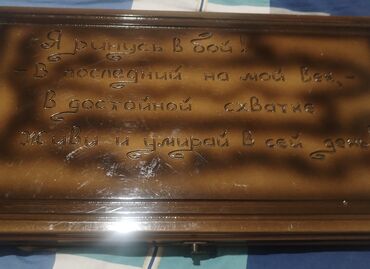 - Я ринусь в бой!
- В последний на мой век, -
В достойной схватке
Живи и умирай в сей день